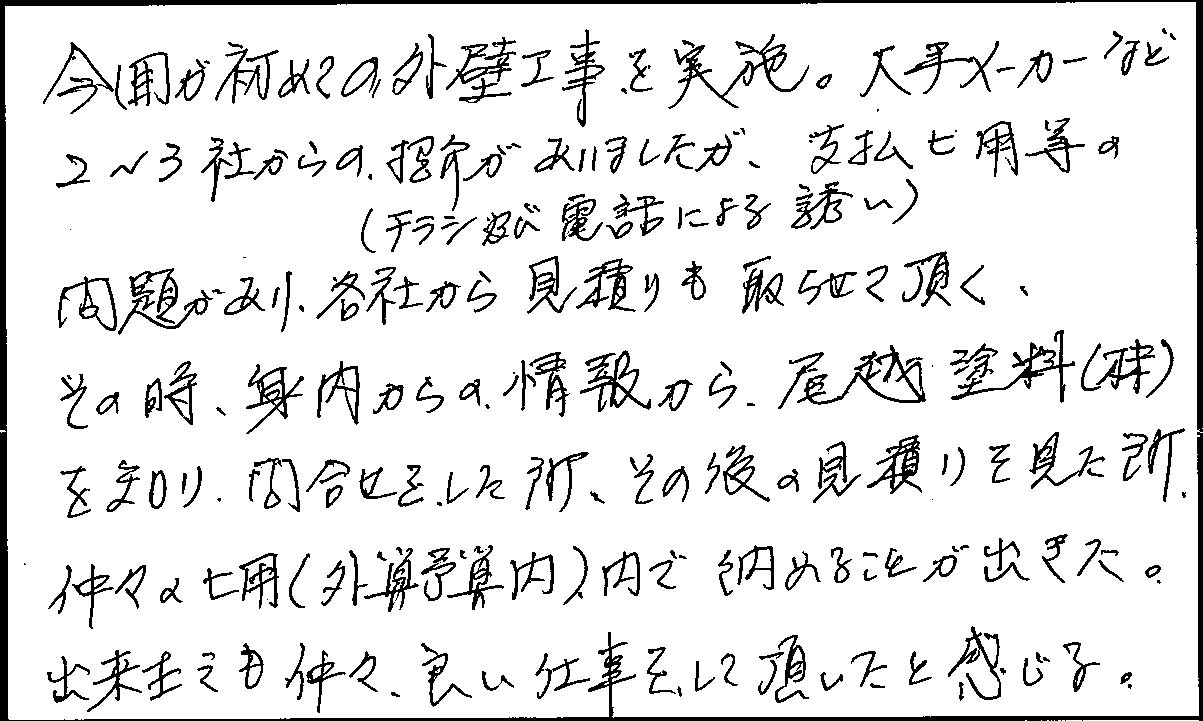 今回が初めての外壁工事を実施。大手メーカーなど
2〜3社からの、招介がありましたが、支払ヒ用等の
(チラシ及び電話による誘い)
問題があり、各社から見積りも取らせて頂く、
その時、身内からの、情報から、尾越塗料(株)
を知り、問合せをした所、その後の見積りを見た所、
仲々のヒ用(予算内)内で納めることが出きた。
出来ばえも仲々、良い仕事をして頂いたと感じる。